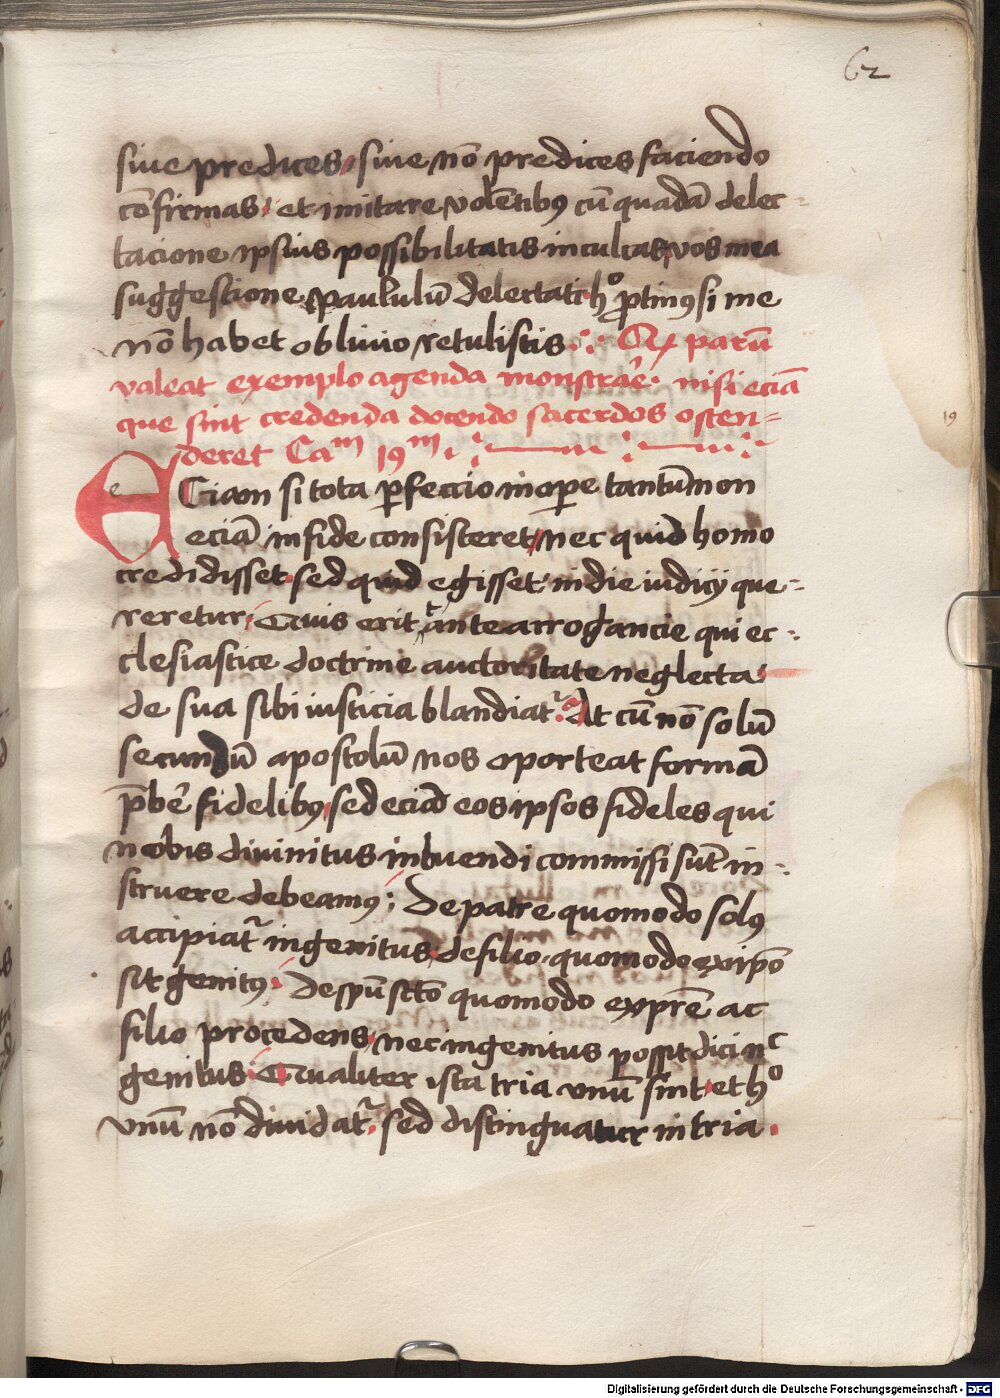 62
siue predices siue nō predices faciendo
cōfirmas et imitare volētibꝫ cū quadā delec-
tacione ipsius possibilitatis inculcas vos mea
suggestione paululū delectati hᵒ ꝓtinꝰ si me
nō habet obliuio retulistis Qꝫ parū
valeat exemplo agenda monstrare nisi eciā
que sint credenda docendo sacerdos osten-
deret Caᵐ 19ᵐ
19
ECiam si tota ꝑfeccio in oꝑe tantū non
eciā in fide consisteret nec quid homo
credidisset sed quid egisset in die iudicij que-
reretur Quis erit tante arrogancie qui ec-
clesiastice doctrine auctoritate neglecta
de sua sibi iusticia blandiat᷑ At cū nō solū
secundū apostolū nos oporteat formā
p̄bere fidelibꝫ sed eciā eos ipsos fideles qui
nobis diuinitus inbuendi commissi sūt in-
struere debeamꝰ De patre quomodo solꝰ
accipiat᷑ ingenitus de filio quomodo ex ipō
sit genitꝰ De spū sctō quomodo ex pr̄e ac
filio procedens nec ingenitus possit dici nᶜ
genitus Qualiter ista tria vnū sint et hᵒ
vnū nō diuidat᷑ sed distinguatur in tria
Digitalisierung gefördert durch die Deutsche Forschungsgemeinschaft - DFG